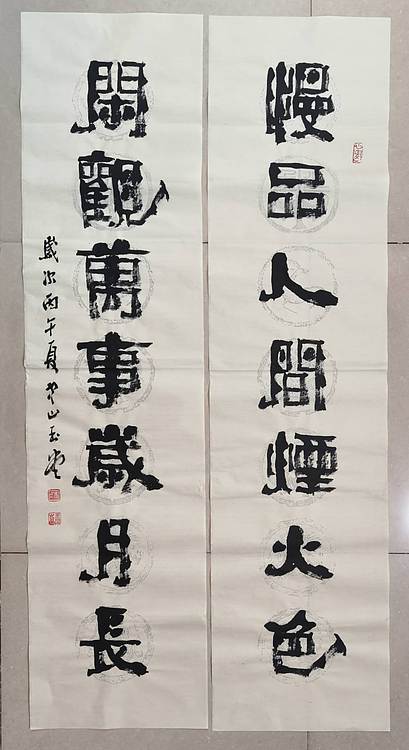 慢品人間煙火色
閑觀萬事歲月長
歲次丙午夏